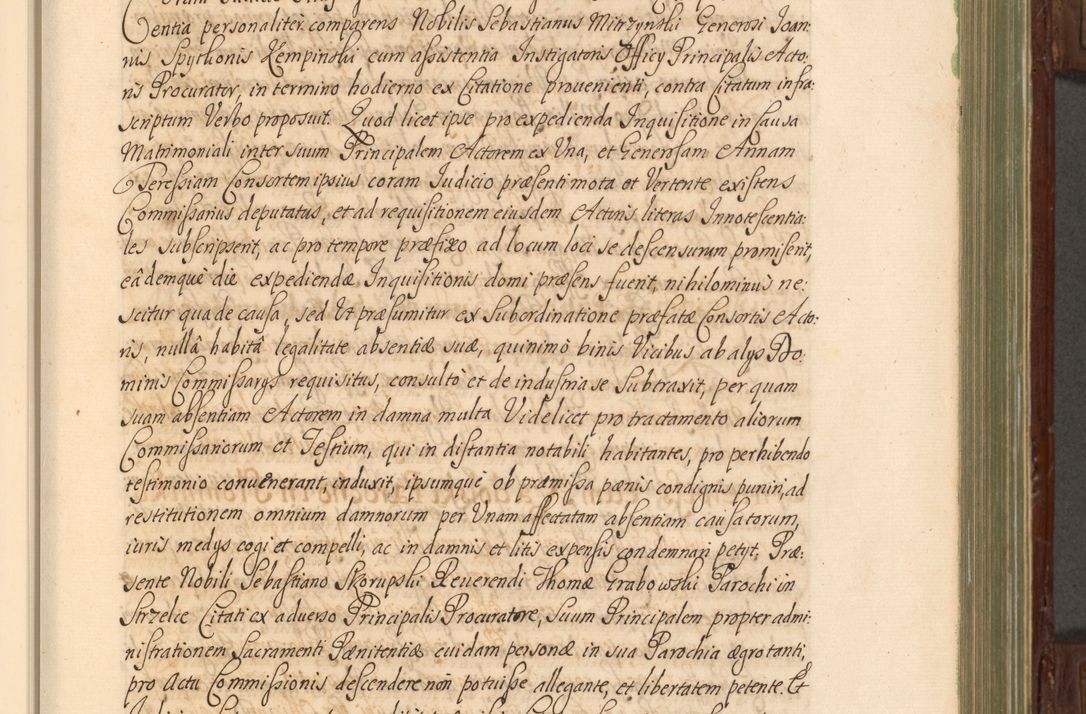 entia personaliter comparens Nobilis Sebastianus Mirzynski Generosi Joan:
nis Spythonis Kempinski cum assistentia Instigatoris Officy Principalis Acto:
ris Procurator, in termino hodierno ex Citatione provenienti, contra Citatum infra:
scriptum Verbo proposuit. Quod licet ipse pro expedienda Inquisitione in causa
Matrimoniali inter suum Principalem Actorem ex Una, et Generosam Annam
Teressiam Consortem ipsius coram Judicio præsenti mota et Vertente existens
Commissarius deputatus, et ad requisitionem eiusdem Actoris literas Innotescentia:
les subscripserit, ac pro tempore præfixo ad locum loci se descensurum promiserit,
eâdemquè die expediendæ Inquisitionis domi præsens fuerit, nihilominus ne:
scitur qua de causa, sed Ut præsumitur ex Subordinatione præfatæ Consortis Acto:
ris, nullâ habitâ legalitate absentiæ suæ, quinimò binis Vicibus ab alys Do:
minis Commissarys requisitus, consultò et de industria se Subtraxit, per quam
suam absentiam Actorem in damna multa Videlicet pro tractamento aliorum
Commissariorum et Testium, qui in distantia notabili habitantes, pro perhibendo
testimonio convenerant, induxit, ipsumquè ob præmissa pænis condignis puniri, ad
restitutionem omnium damnorum per Unam affectatam absentiam causatorum,
iuris medys cogi et compelli, ac in damnis et litis expensis condemnari petyt, Præ:
sente Nobili Sebastiano Skorupski Reverendi Thomæ Grabowski Parochi in
Strzelce Citati ex adverso Principalis Procuratore, Suum Principalem propter admi:
nistrationem Sacramenti Pænitentiæ cuidam personæ in sua Parochia ægrotanti,
pro Actu Commissionis descendere non potuisse allegante, et libertatem petente. Et